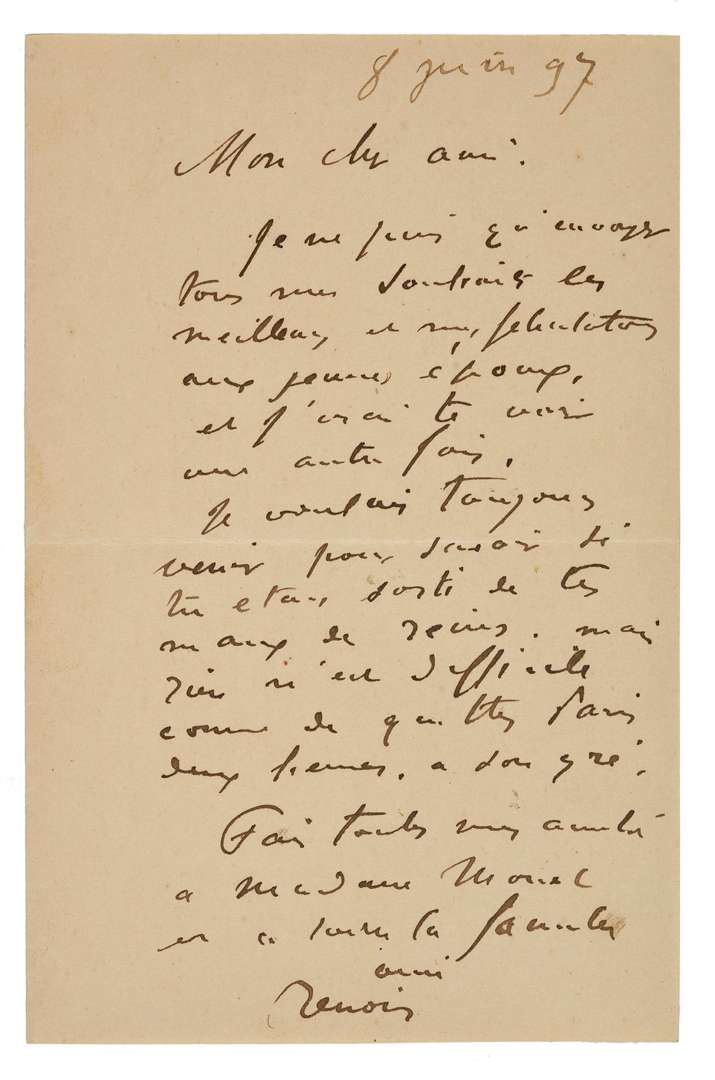 8 juin 97
Mon cher ami.
Je ne puis qu'envoyer
tous mes souhaits les
meilleurs et mes félicitations
aux jeunes époux,
et j'irai te voir
une autre fois,
je voulais toujours
venir pour savoir si
tu etais sorti de tes
maux de reins. mais
rien n'est difficile
comme de quitter Paris
deux heures, a son gré.
Fais toutes mes amitiés
a Madame Monet
et a toute la famille
ami
Renoir